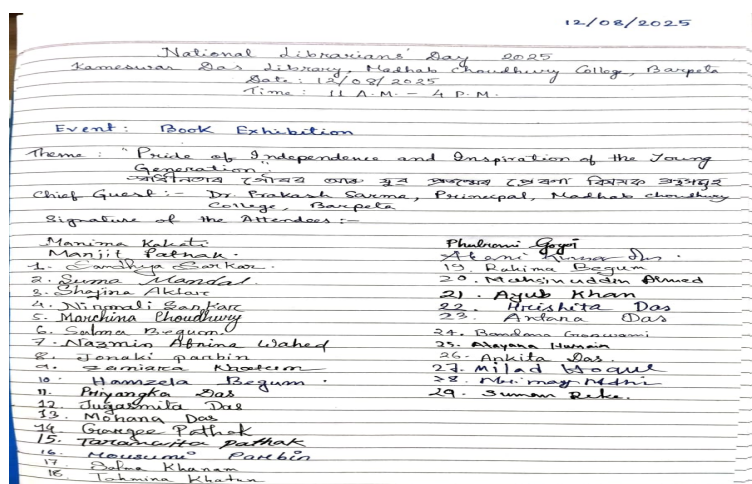 12/08/2025
National Librarians' Day 2025
Kameswar Das Library, Madhab Choudhury College, Barpeta
Date: 12/08/2025
Time: 11 A.M. – 4 P.M.
Event: Book Exhibition
Theme: "Pride of Independence and Inspiration of the Young
Generation"
স্বাধীনতাৰ গৌৰৱ আৰু যুৱ প্ৰজন্মৰ প্ৰেৰণা বিষয়ক গ্ৰন্থসমূহ
Chief Guest:- Dr. Prakash Sarma, Principal, Madhab Choudhury
College, Barpeta
Signature of the Attendees:-
Manima Kakati
Manjit Pathak.
1. Sandhya Sarkar.
2. Suma Mandal.
3. Shajina Aktar
4. Nirmali Sarkar
5. Marchina Choudhury
6. Salma Begum.
7. Nazmin Afrina Wahed
8. Jonaki parbin
9. Samiara Khatun
10. Hamzela Begum.
11. Priyangka Das
12. Jugasmita Das
13. Mohana Das
14. Gargee Pathak
15. Taramaita pathak
16. Mousumi Parbin
17. Salma Khanam
18. Tahmina Khatun
Phulromi Gogoi
19. Rakima Begum
20. Muhsinuddin Ahmed
21. Ayub Khan
22. Hrishita Das
23. Antara Das
24. Bandana Goswami
25. Alayana Hussain
26. Ankita Das.
27. Milad Hoque
28.
29. Suman Deka.